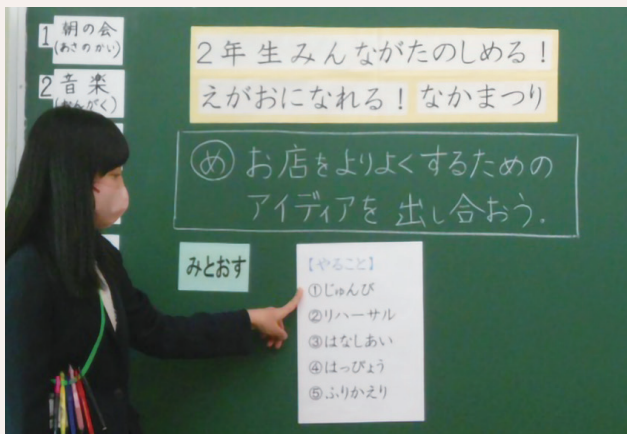 1 朝の会
(あさのかい)
2 音楽
(おんがく)
2年生みんながたのしめる!
えがおになれる!なかまつり
め お店をよりよくするための
アイディアを出し合おう.
みとおす
【やること】
①じゅんび
②リハーサル
③はなしあい
④はっぴょう
⑤ふりかえり